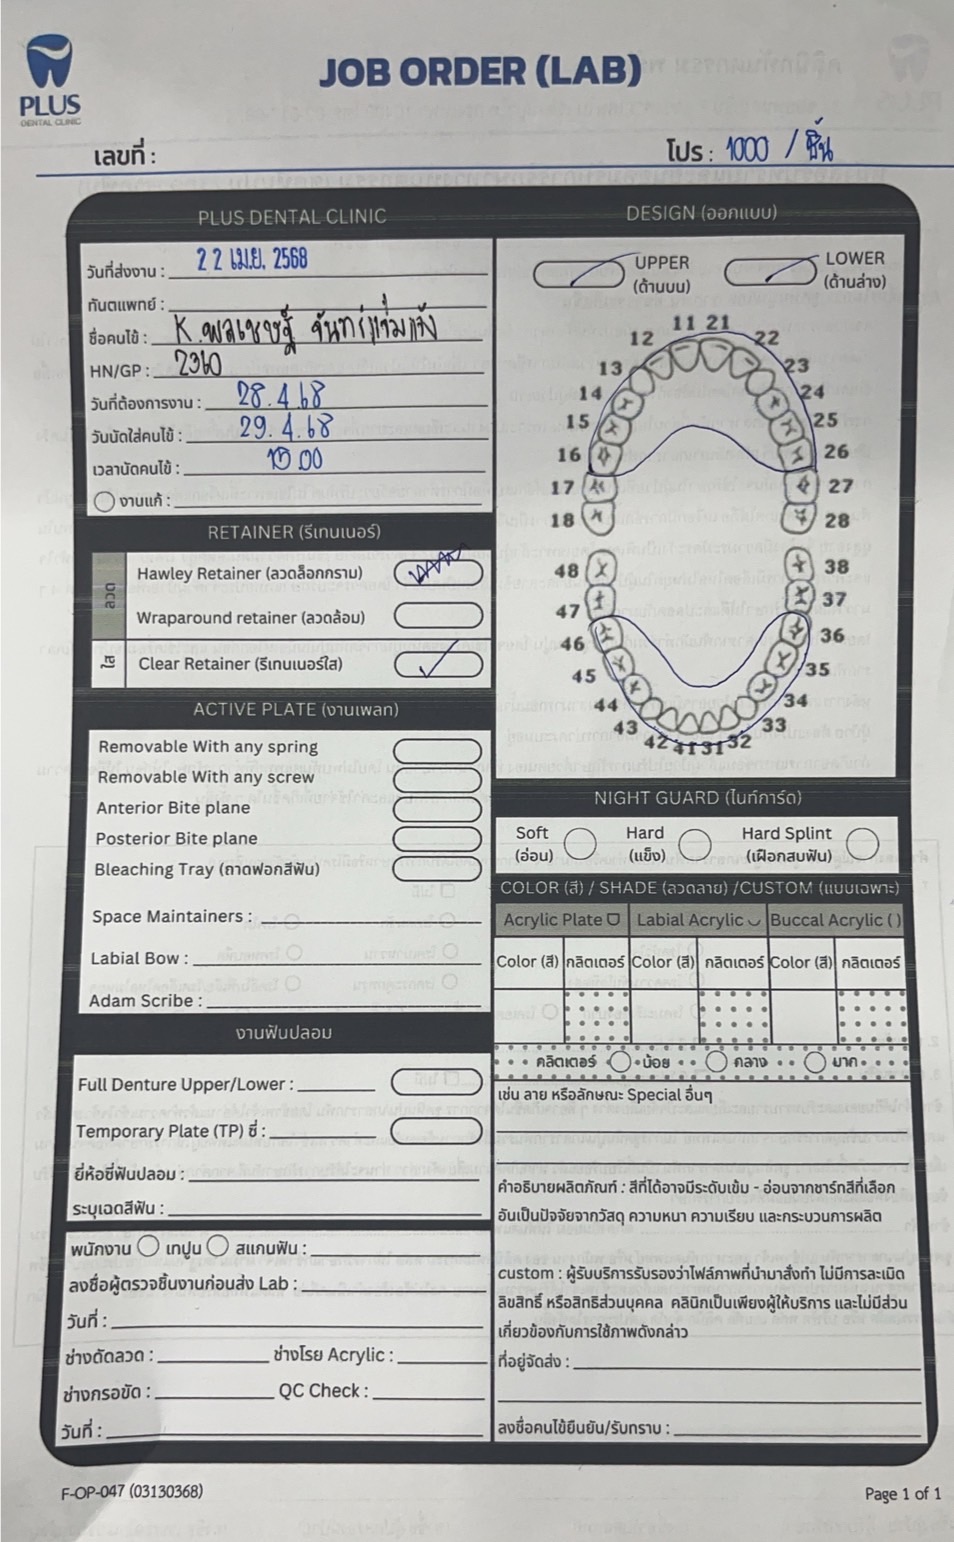 PLUS
DENTAL CLINIC
JOB ORDER (LAB)
เลขที่ :
โปร : 1000 / ชิ้น
PLUS DENTAL CLINIC
วันที่ส่งงาน : 22 เม.ย. 2568
ทันตแพทย์ :
ชื่อคนไข้ : K. พลเชษฐ์ จันทร์แจ่มแจ้ง
HN/GP : 2360
วันที่ต้องการงาน : 28.4.68
วันนัดใส่คนไข้ : 29.4.68
เวลานัดคนไข้ :
งานแก้ :
RETAINER (รีเทนเนอร์)
ลวด
Hawley Retainer (ลวดล็อกกราม)
Wraparound retainer (ลวดล้อม)
ใส
Clear Retainer (รีเทนเนอร์ใส)
ACTIVE PLATE (งานเพลท)
Removable With any spring
Removable With any screw
Anterior Bite plane
Posterior Bite plane
Bleaching Tray (ถาดฟอกสีฟัน)
Space Maintainers :
Labial Bow :
Adam Scribe :
งานฟันปลอม
Full Denture Upper/Lower :
Temporary Plate (TP) ซี่ :
ยี่ห้อซี่ฟันปลอม :
ระบุเฉดสีฟัน :
พนักงาน เทปูน สแกนฟัน :
ลงชื่อผู้ตรวจชิ้นงานก่อนส่ง Lab :
วันที่ :
ช่างดัดลวด : ช่างโรย Acrylic :
ช่างกรอขัด : QC Check :
วันที่ :
DESIGN (ออกแบบ)
UPPER
(ด้านบน)
LOWER
(ด้านล่าง)
11 21
12 22
13 23
14 24
15 25
16 26
17 27
18 28
48 38
47 37
46 36
45 35
44 34
43 33
42 41 31 32
NIGHT GUARD (ไนท์การ์ด)
Soft
(อ่อน)
Hard
(แข็ง)
Hard Splint
(เฝือกสบฟัน)
COLOR (สี) / SHADE (ลวดลาย) /CUSTOM (แบบเฉพาะ)
Acrylic Plate Labial Acrylic Buccal Acrylic ( )
Color (สี) กลิตเตอร์ Color (สี) กลิตเตอร์ Color (สี) กลิตเตอร์
กลิตเตอร์ น้อย กลาง มาก
เช่น ลาย หรือลักษณะ Special อื่นๆ
คำอธิบายผลิตภัณฑ์ : สีที่ได้อาจมีระดับเข้ม - อ่อนจากชาร์ทสีที่เลือก
อันเป็นปัจจัยจากวัสดุ ความหนา ความเรียบ และกระบวนการผลิต
custom : ผู้รับบริการรับรองว่าไฟล์ภาพที่นำมาสั่งทำ ไม่มีการละเมิด
ลิขสิทธิ์ หรือสิทธิส่วนบุคคล คลินิกเป็นเพียงผู้ให้บริการ และไม่มีส่วน
เกี่ยวข้องกับการใช้ภาพดังกล่าว
ที่อยู่จัดส่ง :
ลงชื่อคนไข้ยืนยัน/รับทราบ :
F-OP-047 (03130368)
Page 1 of 1